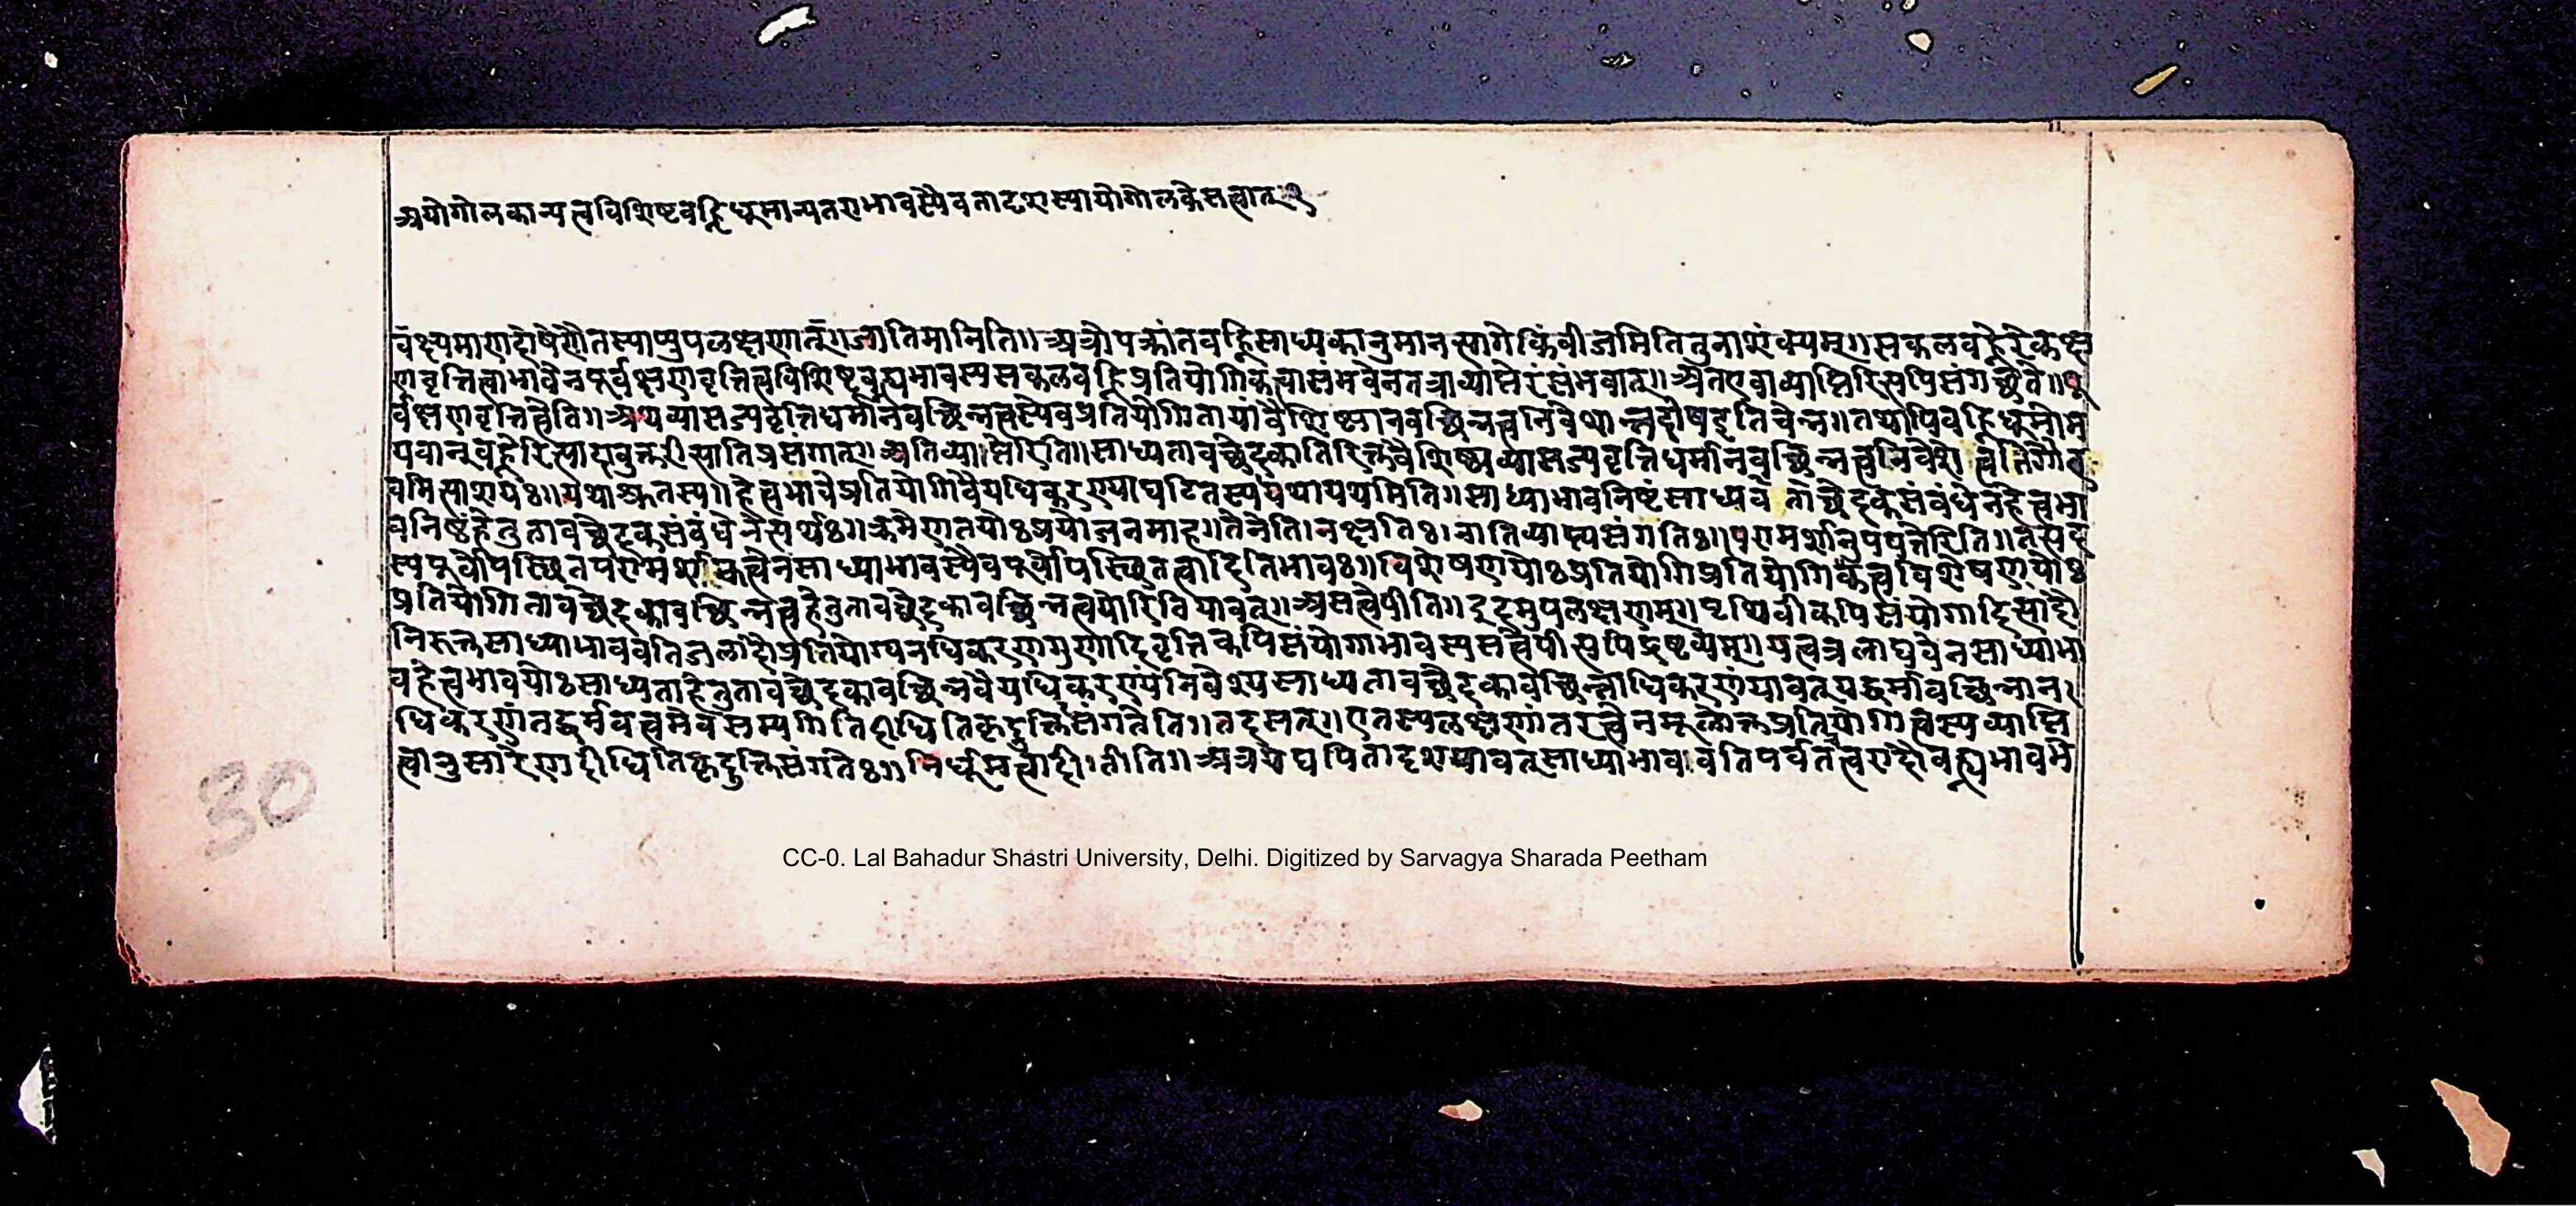 अयोगोलकान्यत्वविशिष्टवह्निधूमान्यतराभावस्यैवतादृशस्यायोगोलकेसत्वात् १
वक्ष्यमाणदोषेणैतस्याप्युपलक्षणात् ॥ जातिमानिति ॥ अत्रोपक्रांतवह्निसाध्यकानुमानत्यागेकिंबीजमितितुनाशंक्यम् ॥ सकलवह्नेरेकक्ष
णवृत्तित्वाभावेनपूर्वक्षणवृत्तित्वविशिष्टवह्न्यभावस्यसकलवह्निप्रतियोगिकत्वासंभवेनतत्राव्याप्तेरसंभवात् ॥ अतएवाव्याप्तिरित्यपिसंगच्छते ॥ पू
र्वक्षणवृत्तित्वेति ॥ अथव्यासज्यवृत्तिधर्मानवच्छिन्नत्वस्येवप्रतियोगितायांवैशिष्ट्यानवच्छिन्नत्वनिवेशान्नदोषइतिचेन्न ॥ तथापिवह्निर्धूमोभ
यवान्वह्नेरित्यादावुक्तरीत्यातिप्रसंगात् ॥ अतिव्याप्तेरिति ॥ साध्यतावच्छेदकातिरिक्तवैशिष्ट्यव्यासज्यवृत्तिधर्मानवच्छिन्नत्वनिवेशे त्वतिगौर
वमित्याशयः ॥ यथाश्रुतस्य ॥ हेत्वभावेप्रतियोगिवैयधिकरण्याघटितस्य यथायथमिति ॥ साध्याभावनिष्ठंसाध्यव ताच्छेदकसंबंधेनहेत्वभा
वनिष्ठंहेतुतावच्छेदकसंबंधेनेत्यर्थः ॥ क्रमेणतयोःप्रयोजनमाह ॥ तेनेति । नक्षतिः । नातिव्याप्त्यसंगतिः ॥ परामर्शानुपपत्तेरिति ॥ तत्सद
स्यपूर्वोपस्थितपरामर्शाकत्वेनसाध्याभावस्यैवपूर्वोपस्थितत्वादितिभावः ॥ विशेषणयोःप्रतियोगिप्रतियोगिकत्वविशेषणयोः
प्रतियोगितावच्छेदकावच्छिन्नत्वहेतुतावच्छेदकावच्छिन्नत्वयोरितियावत् ॥ असत्वेपीति ॥ इदमुपलक्षणम् ॥ पृथिवीकपिसंयोगादित्यादौ
निरुक्तसाध्याभाववतिजलादौप्रतियोग्यनधिकरणगुणादिवृत्तिकपिसंयोगाभावस्यसत्वेपीत्यपिद्रष्टव्यम् ॥ यत्वत्रलाघवेनसाध्याभा
वहेत्वभावयोःसाध्यताहेतुतावच्छेदकावच्छिन्नवैयधिकरण्यंनिवेश्यसाध्यतावच्छेदकावच्छिन्नाधिकरणंयावत्यद्धर्मावच्छिन्नान
धिकरणंतद्धर्मवत्वमेवसम्यगितिदीधितिकृदुक्तिसंगतेति ॥ तदसत् ॥ एतस्यलक्षणांतरत्वेनमूलोक्तप्रतियोगित्वस्यव्याप्ति
त्वानुसारेणदीधितिकृदुक्तिसंगतेः ॥ निर्धूमत्वादीतीति ॥ अत्रयद्यपितादृशयावत्साध्याभाववतिपर्वतत्वरादौवह्न्यभावमे
30
CC-0. Lal Bahadur Shastri University, Delhi. Digitized by Sarvagya Sharada Peetham